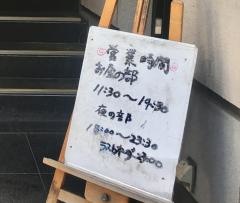 営業時間
お昼の部
11:30〜14:30
夜の部
18:00〜23:30
ラストオーダー23:00